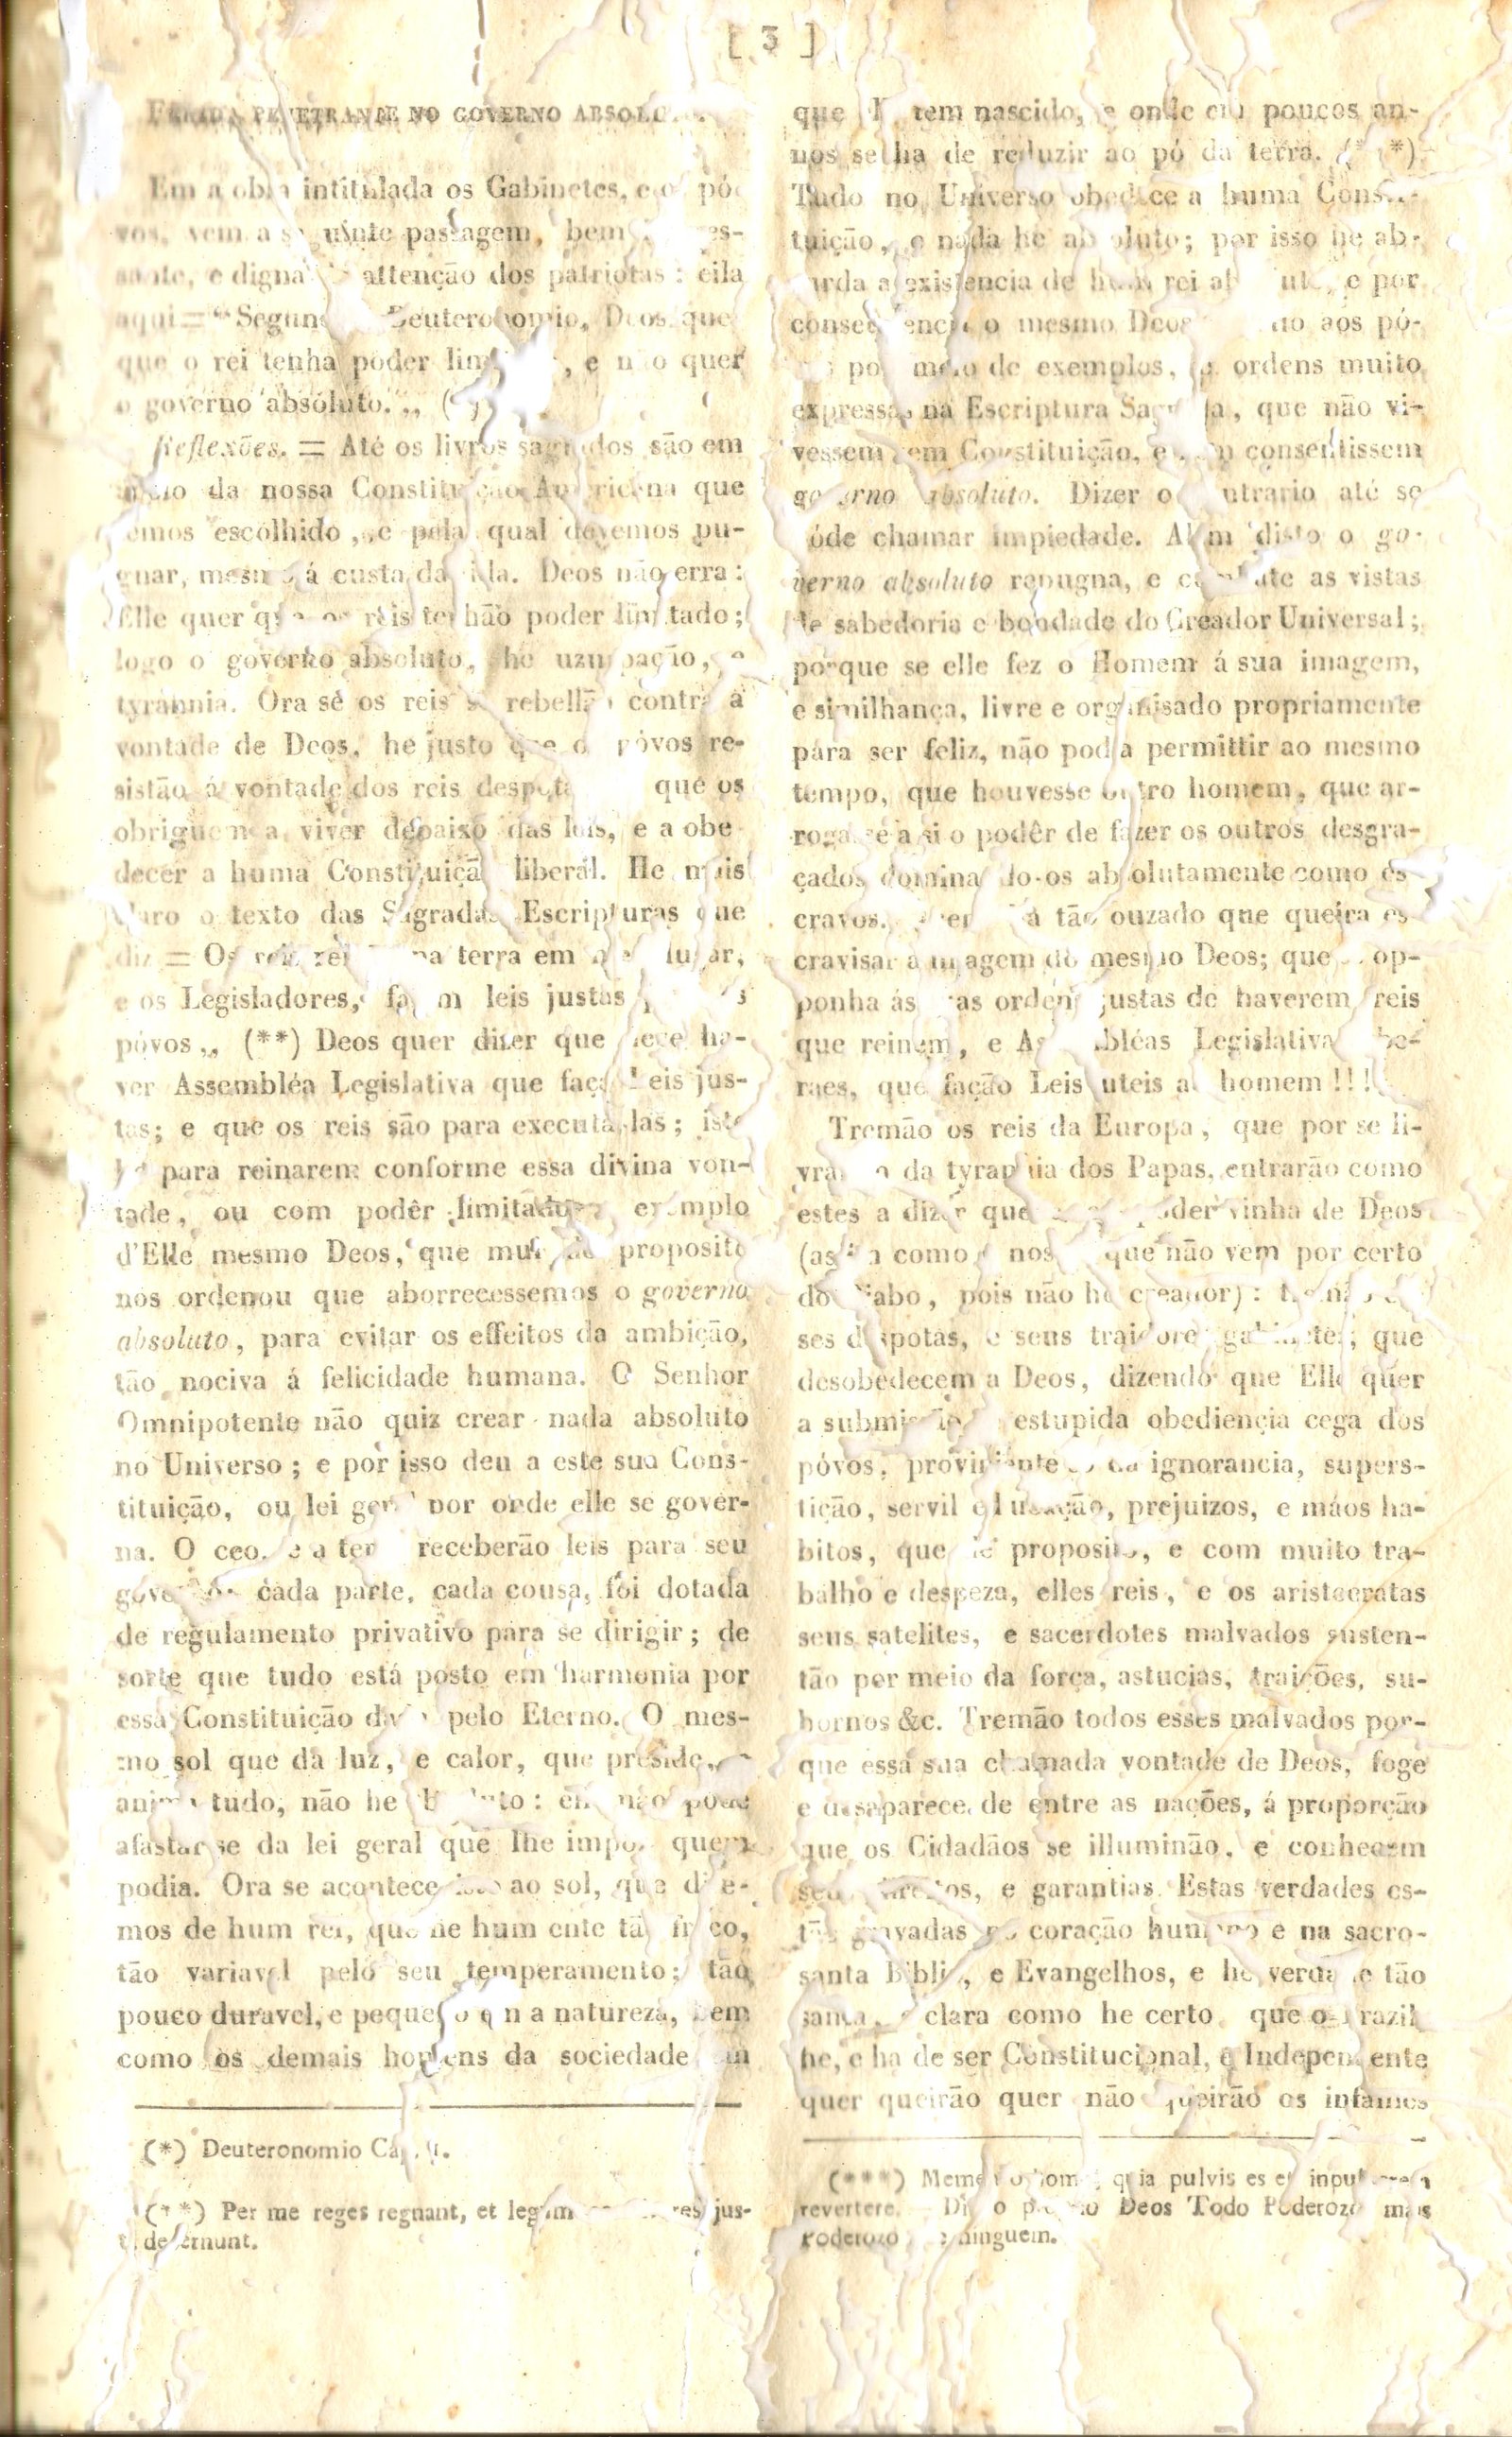 [ 3 ]
FERIDA PENETRANTE NO GOVERNO
Em a obra intitulada os Gabinetes, e os pó-
vos, vem a seguinte passagem, bem
e digna attenção dos patriotas: eila
aqui = “ Segundo Deuteronomio, Deos quer
que o rei tenha poder , e não quer
o governo absoluto. „ (*)
Reflexões. = Até os livros sagrados são em
da nossa Constituição Americana que
temos escolhido, e pela qual devemos pu-
gnar, mesmo á custa da vida. Deos não erra:
Elle quer que os reis tenhão poder limitado;
logo o governo absoluto, he uzurpação, e
tyrannia. Ora se os reis se rebellão contra a
vontade de Deos, he justo que os póvos re-
sistão á vontade dos reis despotas que os
obriguem a viver debaixo das leis, e a obe-
decer a huma Constituição liberal. He mais
claro o texto das Sagradas Escripturas que
diz = Os reis na terra em lugar,
e os Legisladores, fação leis justas
póvos „ (**) Deos quer dizer que deve ha-
ver Assembléa Legislativa que faça Leis jus-
tas; e que os reis são para executa-las; isto
he para reinarem conforme essa divina von-
tade, ou com podêr limitado exemplo
d'Elle mesmo Deos, que mui de proposito
nos ordenou que aborrecessemos o governo
absoluto, para evitar os effeitos da ambição,
tão nociva á felicidade humana. O Senhor
Omnipotente não quiz crear nada absoluto
no Universo; e por isso deu a este sua Cons-
tituição, ou lei geral por onde elle se gover-
na. O ceo, e a terra receberão leis para seu
governo: cada parte, cada cousa, foi dotada
de regulamento privativo para se dirigir; de
sorte que tudo está posto em harmonia por
essa Constituição dada pelo Eterno. O mes-
mo sol que dá luz, e calor, que preside, e
anima tudo, não he absoluto: elle não póde
afastar se da lei geral que lhe impoz quem
podia. Ora se acontece isto ao sol, que dire-
mos de hum rei, que he hum ente tão fraco,
tão variavel pelo seu temperamento; tão
pouco duravel, e pequeno em a natureza, bem
como os demais homens da sociedade em
(*) Deuteronomio Cap.
(**) Per me reges regnant, et legum jus-
ta decernunt.
que tem nascido, e onde em poucos an-
nos se ha de reduzir ao pó da terra. (***)
Tudo no Universo obedece a huma Consti-
tuição, e nada he absoluto; por isso he ab-
surda a existencia de hum rei absoluto, e por
consequencia o mesmo Deos aos pó-
vos por meio de exemplos, e ordens muito
expressas na Escriptura Sagrada, que não vi-
vessem sem Constituição, e consentissem
governo absoluto. Dizer o contrario até se
póde chamar impiedade. Alem disto o go-
verno absoluto repugna, e combate as vistas
de sabedoria e bondade do Creador Universal;
porque se elle fez o Homem á sua imagem,
e similhança, livre e organisado propriamente
para ser feliz, não podia permittir ao mesmo
tempo, que houvesse outro homem, que ar-
rogasse a si o podêr de fazer os outros desgra-
çados dominando-os absolutamente como es-
cravos. há tão ouzado que queira es-
cravisar a imagem do mesmo Deos; que se op-
ponha ás suas ordens justas de haverem reis
que reinem, e Assembléas Legislativas libe-
raes, que fação Leis uteis ao homem!!!
Tremão os reis da Europa, que por se li-
vrarem da tyrannia dos Papas, entrarão como
estes a dizer que poder vinha de Deos
(assim como o nosso que não vem por certo
do Diabo, pois não he creador): tremão es-
ses despotas, e seus traidores gabinetes, que
desobedecem a Deos, dizendo que Elle quer
a submissão estupida obediencia cega dos
póvos, proviniente da ignorancia, supers-
tição, servil educação, prejuizos, e máos ha-
bitos, que de proposito, e com muito tra-
balho e despeza, elles reis, e os aristocratas
seus satelites, e sacerdotes malvados susten-
tão por meio da força, astucias, traições, su-
bornos &c. Tremão todos esses malvados por-
que essa sua chamada vontade de Deos, foge
e desaparece de entre as nações, á proporção
que os Cidadãos se illuminão, e conhecem
seus direitos, e garantias. Estas verdades es-
tão gravadas no coração humano e na sacro-
santa Biblia, e Evangelhos, e he verdade tão
santa, e clara como he certo que o Brazil
he, e ha de ser Constitucional, e Independente
quer queirão quer não queirão os infames
(***) Memento homo, quia pulvis es et in pulverem
reverteres. Diz o proprio Deos Todo Poderozo mais
Poderozo ninguem.